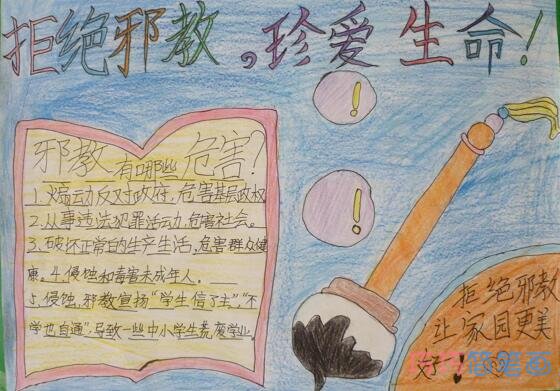 拒绝邪教,珍爱生命!
邪教有哪些危害?
1.煽动反对政府,危害基层政权
2.从事违法犯罪活动,危害社会。
3.破坏正常的生产生活,危害群众健
康。4.侵蚀和毒害未成年人。
5.侵蚀,邪教宣扬“学生信了主”,“不
学也自通”,导致一些中小学生荒废学业。
!
!
拒绝邪教
让家园更美
好!